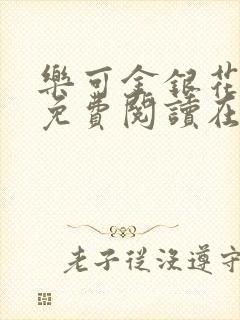 樂可金銀花
免費閱讀在
老子從沒遵守